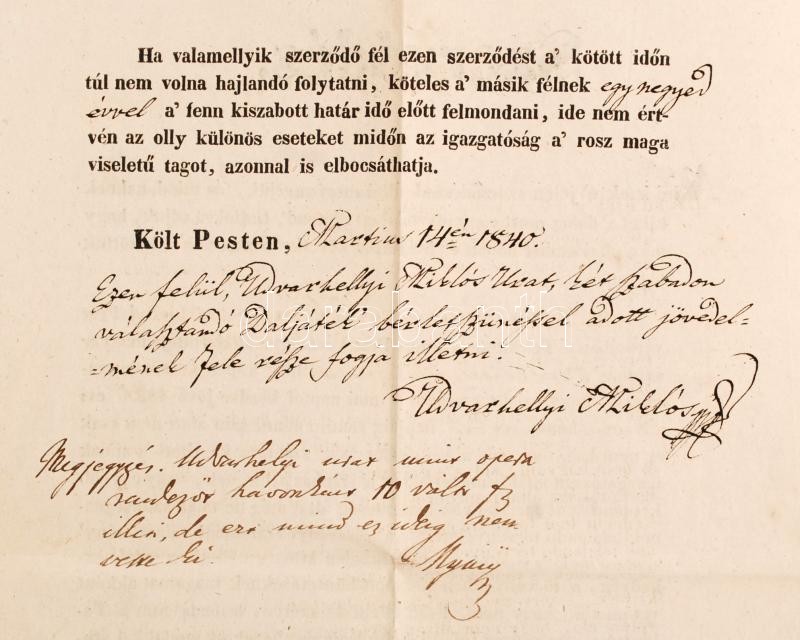 Ha valamellyik szerződő fél ezen szerződést a' kötött időn
túl nem volna hajlandó folytatni, köteles a' másik félnek egy negyed
évvel a' fenn kiszabott határ idő előtt felmondani, ide nem ért-
vén az olly különös eseteket midőn az igazgatóság a' rosz maga
viseletű tagot, azonnal is elbocsáthatja.
Költ Pesten, Martius 14én 1840.
Ezen felül, Udvarhellyi Miklós Urat, két szabadon
választandó Daljáték bérletszünéssel adott jövedel-
-mének fele része fogja illetni.
Udvarhellyi Miklós
Megjegyzés. Udvarhelyi urat mint opera
rendezőt havonkint 10 váltó f
illeti, de ezt mind ez ideig nem
vette ki.
darabanth